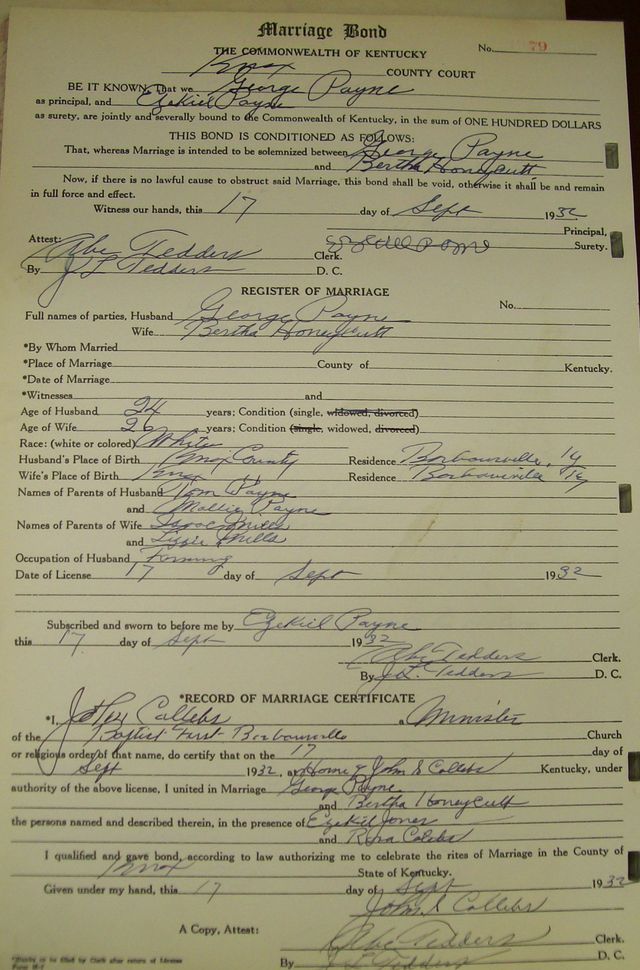 Marriage Bond
THE COMMONWEALTH OF KENTUCKY
No. 79
Knox COUNTY COURT
BE IT KNOWN, That we George Payne
as principal, and Ezekiel Payne
as surety, are jointly and severally bound to the Commonwealth of Kentucky, in the sum of ONE HUNDRED DOLLARS
THIS BOND IS CONDITIONED AS FOLLOWS:
That, whereas Marriage is intended to be solemnized between George Payne
and Bertha Honeycutt
Now, if there is no lawful cause to obstruct said Marriage, this bond shall be void, otherwise it shall be and remain
in full force and effect.
Witness our hands, this 17 day of Sept 1932
Principal,
Attest: Ezekiel Payne Surety.
Abe Tedders Clerk.
By J L Tedders D. C.
REGISTER OF MARRIAGE
No.
Full names of parties, Husband George Payne
Wife Bertha Honeycutt
*By Whom Married
*Place of Marriage County of Kentucky.
*Date of Marriage
*Witnesses and
Age of Husband 24 years; Condition (single, widowed, divorced)
Age of Wife 26 years; Condition (single, widowed, divorced)
Race: (white or colored) White
Husband's Place of Birth Knox County Residence Barbourville, Ky
Wife's Place of Birth Knox " Residence Barbourville Ky
Names of Parents of Husband Tom Payne
and Mollie Payne
Names of Parents of Wife Isaac Mills
and Lizzie Mills
Occupation of Husband Farming
Date of License 17 day of Sept 1932
Subscribed and sworn to before me by Ezekiel Payne
this 17 day of Sept 1932
Abe Tedders Clerk.
By J. L. Tedders D. C.
*RECORD OF MARRIAGE CERTIFICATE
*I, Collebs a Minister
of the Baptist First Barbourville Church
or religious order of that name, do certify that on the 17 day of
Sept 1932, at Home of John S Collebs Kentucky, under
authority of the above license, I united in Marriage George Payne
and Bertha Honeycutt
the persons named and described therein, in the presence of Ezekiel Jones
and Rosa Colebs
I qualified and gave bond, according to law authorizing me to celebrate the rites of Marriage in the County of
Knox State of Kentucky.
Given under my hand, this 17 day of Sept 1932
John S Collebs
A Copy, Attest: Abe Tedders Clerk.
By J L Tedders D. C.
*Blanks to be filled by Clerk after return of License